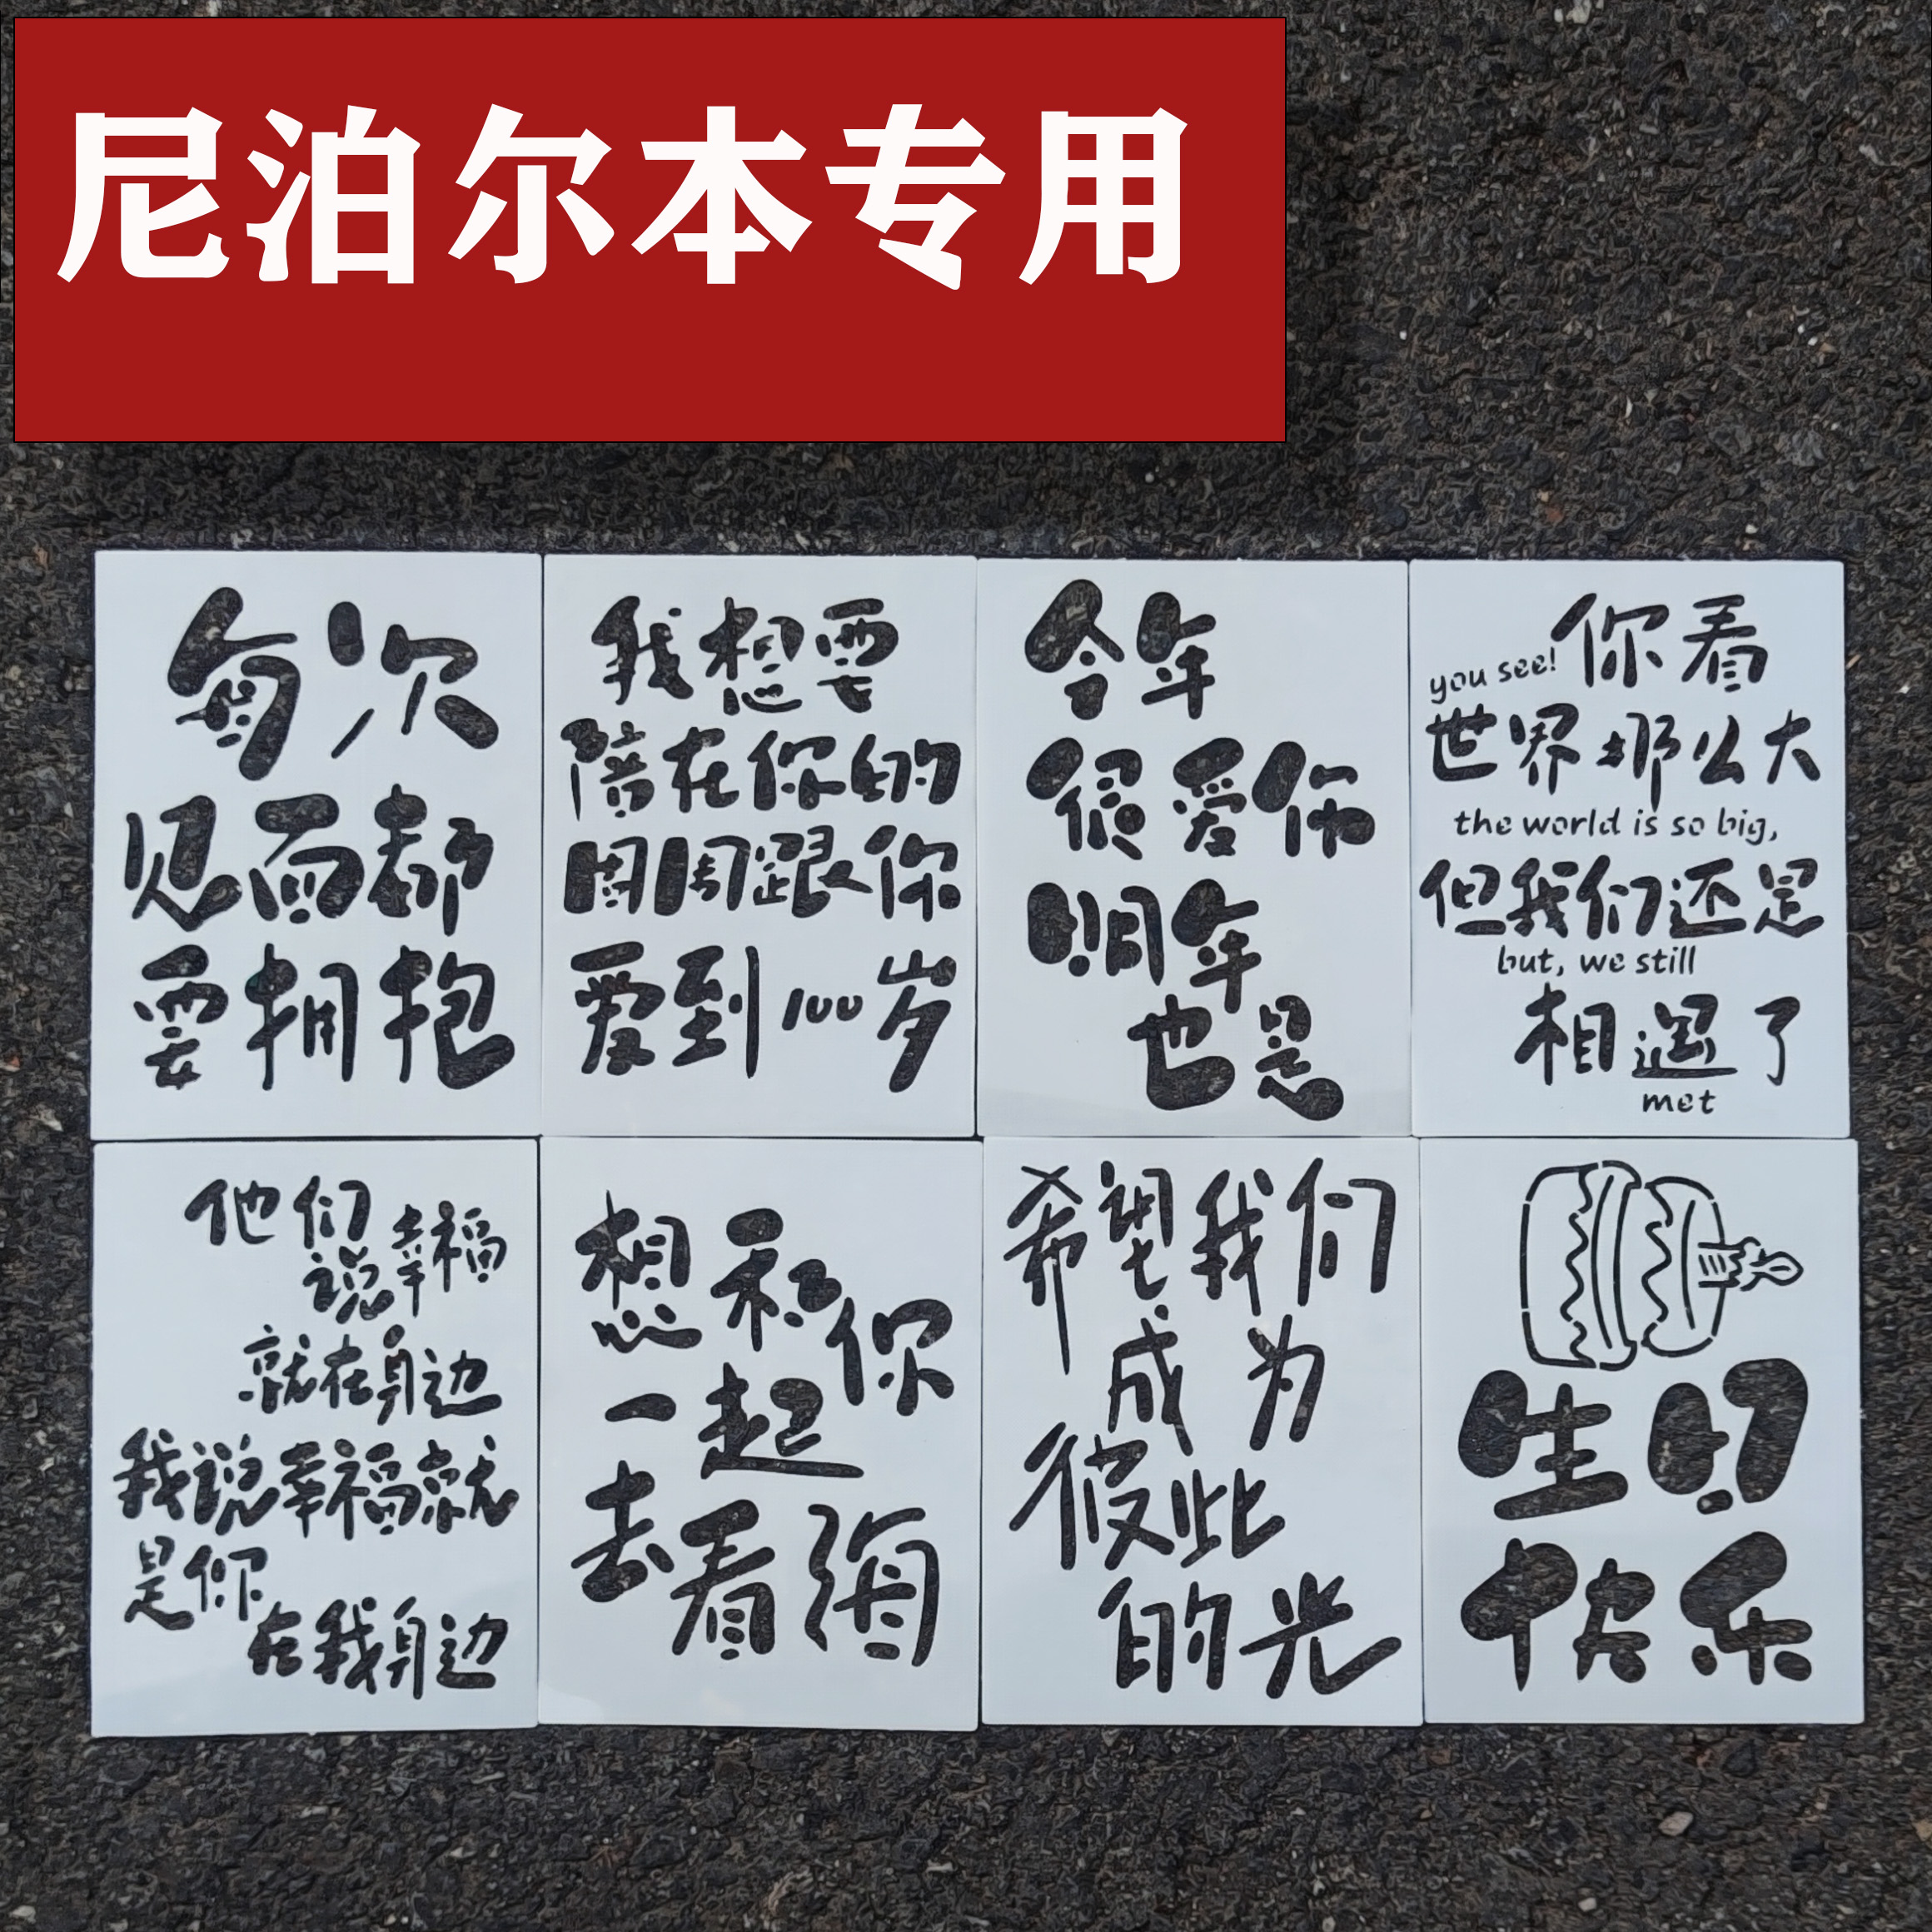 尼泊尔本专用
每次
见面都
要拥抱
我想要
陪在你的
周周跟你
爱到100岁
今年
很爱你
明年
也是
你看
you see!
世界那么大
the world is so big,
但我们还是
but, we still
相遇了
met
他们
说幸福
就在身边
我说幸福就
是你
在我身边
想和你
一起
去看海
希望我们
成为
彼此
的光
生日
快乐